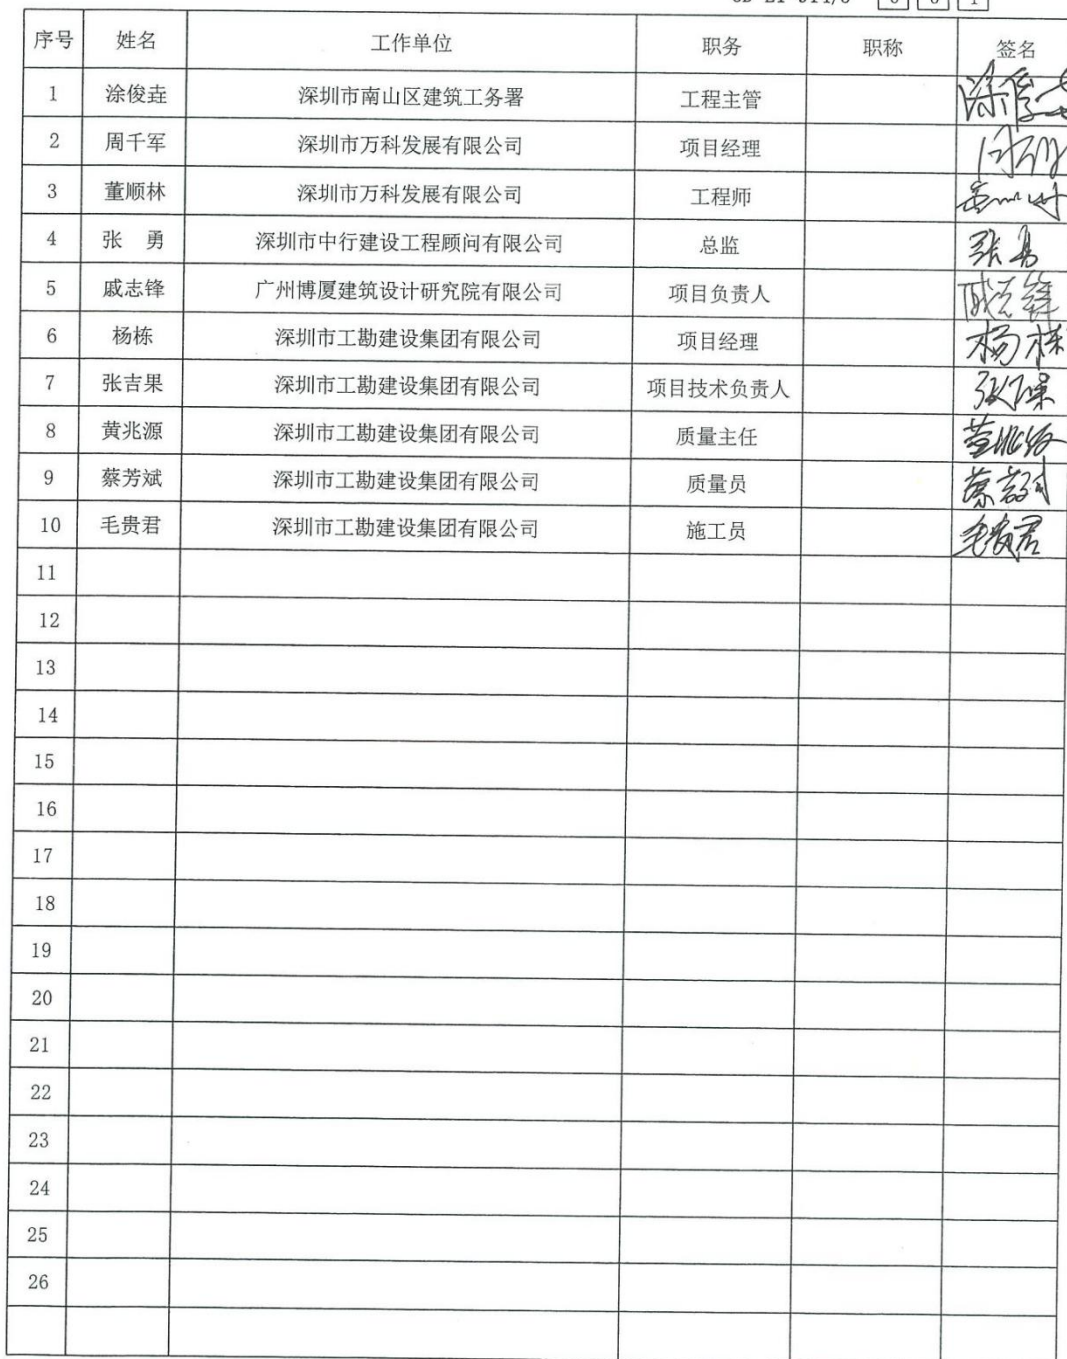 序号 姓名 工作单位 职务 职称 签名
1 涂俊垚 深圳市南山区建筑工务署 工程主管
2 周千军 深圳市万科发展有限公司 项目经理
3 董顺林 深圳市万科发展有限公司 工程师
4 张 勇 深圳市中行建设工程顾问有限公司 总监 张勇
5 戚志锋 广州博厦建筑设计研究院有限公司 项目负责人 戚志锋
6 杨栋 深圳市工勘建设集团有限公司 项目经理 杨栋
7 张吉果 深圳市工勘建设集团有限公司 项目技术负责人
8 黄兆源 深圳市工勘建设集团有限公司 质量主任
9 蔡芳斌 深圳市工勘建设集团有限公司 质量员
10 毛贵君 深圳市工勘建设集团有限公司 施工员 毛贵君
11
12
13
14
15
16
17
18
19
20
21
22
23
24
25
26